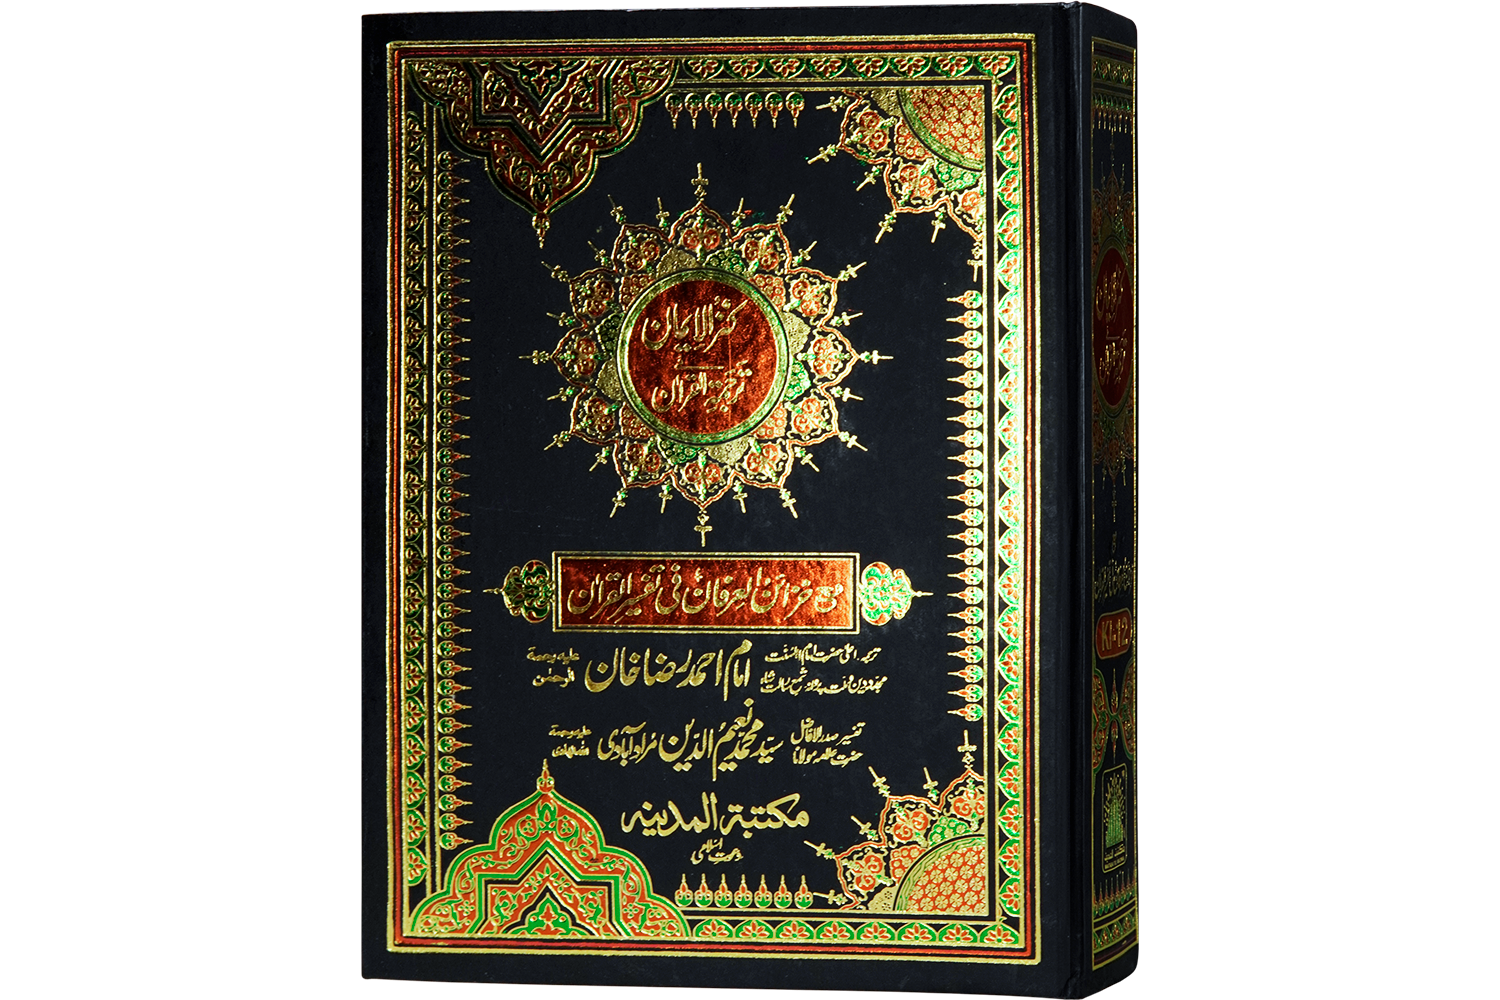 کنز الایمان
ترجمۃ القرآن
مع خزائن العرفان فی تفسیر القرآن
ترجمہ اعلیٰ حضرت امام اہلسنت
مجدد دین و ملت پروانہ شمع رسالت شاہ
امام احمد رضا خان علیہ رحمۃ الرحمٰن
تفسیر صدر الافاضل
حضرت علامہ مولانا
سید محمد نعیم الدین مراد آبادی علیہ رحمۃ
مکتبۃ المدینہ
دعوت اسلامی
KI-12